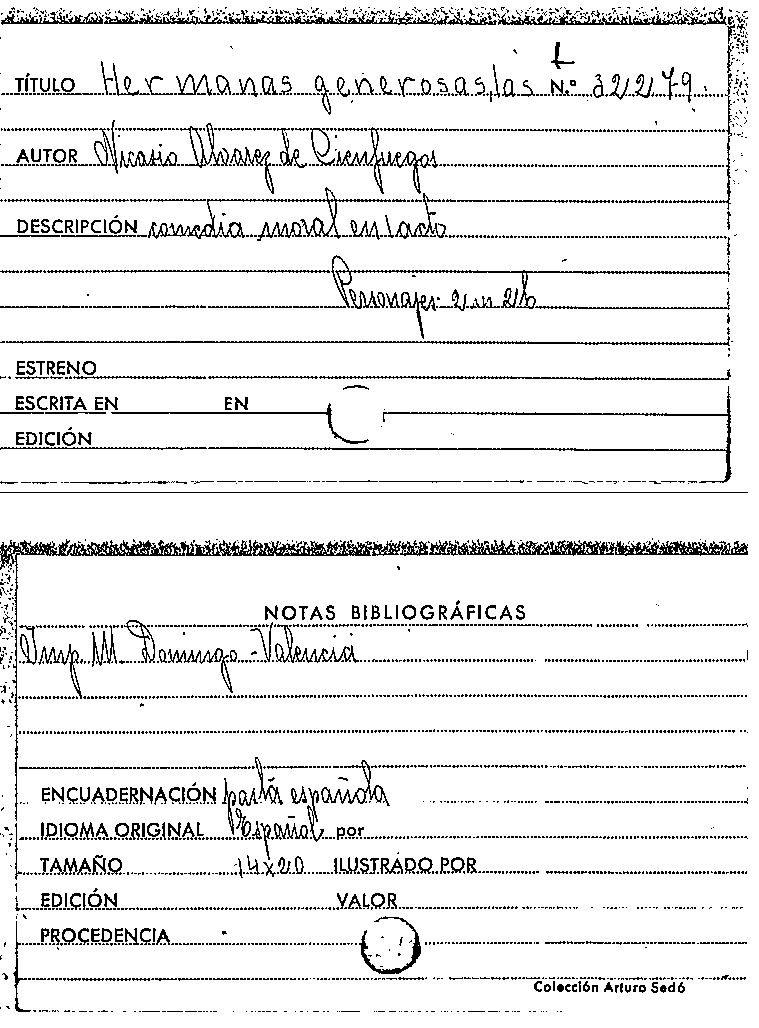 L
TÍTULO Hermanas generosas, las N.º 32279.
AUTOR Nicasio Alvarez de Cienfuegos
DESCRIPCIÓN comedia moral en 1 acto
Personajes 2m 2h
ESTRENO
ESCRITA EN EN
EDICIÓN
NOTAS BIBLIOGRÁFICAS
Imp M. Domingo - Valencia
ENCUADERNACIÓN pasta española
IDIOMA ORIGINAL Español por
TAMAÑO 14x20 ILUSTRADO POR
EDICIÓN VALOR
PROCEDENCIA
Colección Arturo Sedó